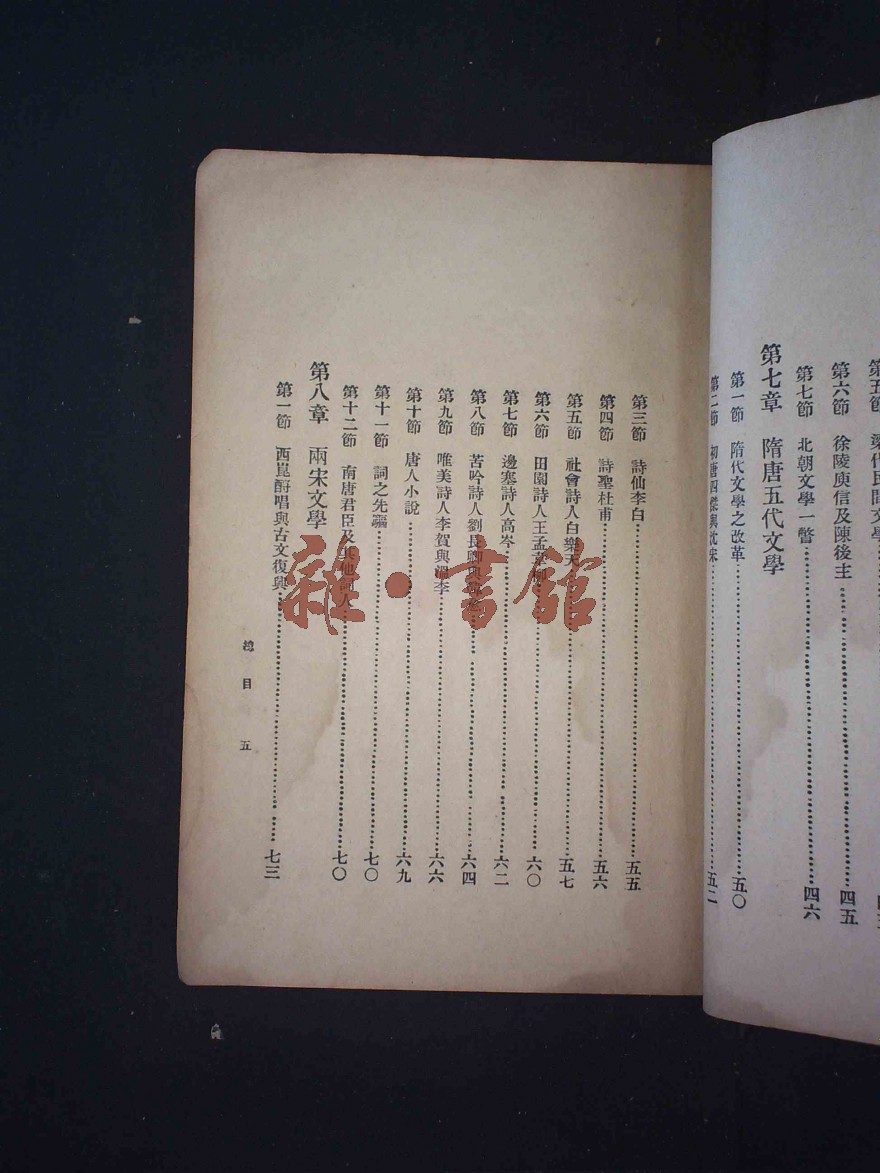 第五節 梁代民間文學
第六節 徐陵庾信及陳後主……四五
第七節 北朝文學一瞥……四六
第七章 隋唐五代文學
第一節 隋代文學之改革……五〇
第二節 初唐四傑與沈宋……五二
第三節 詩仙李白……五五
第四節 詩聖杜甫……五六
第五節 社會詩人白樂天……五七
第六節 田園詩人王孟韋柳……六〇
第七節 邊塞詩人高岑……六二
第八節 苦吟詩人劉長卿與……六四
第九節 唯美詩人李賀與溫李……六六
第十節 唐人小說……六九
第十一節 詞之先驅……七〇
第十二節 南唐君臣及其他詞人……七〇
第八章 兩宋文學
第一節 西崑酬唱與古文復興……七三
總目 五
雜·書館